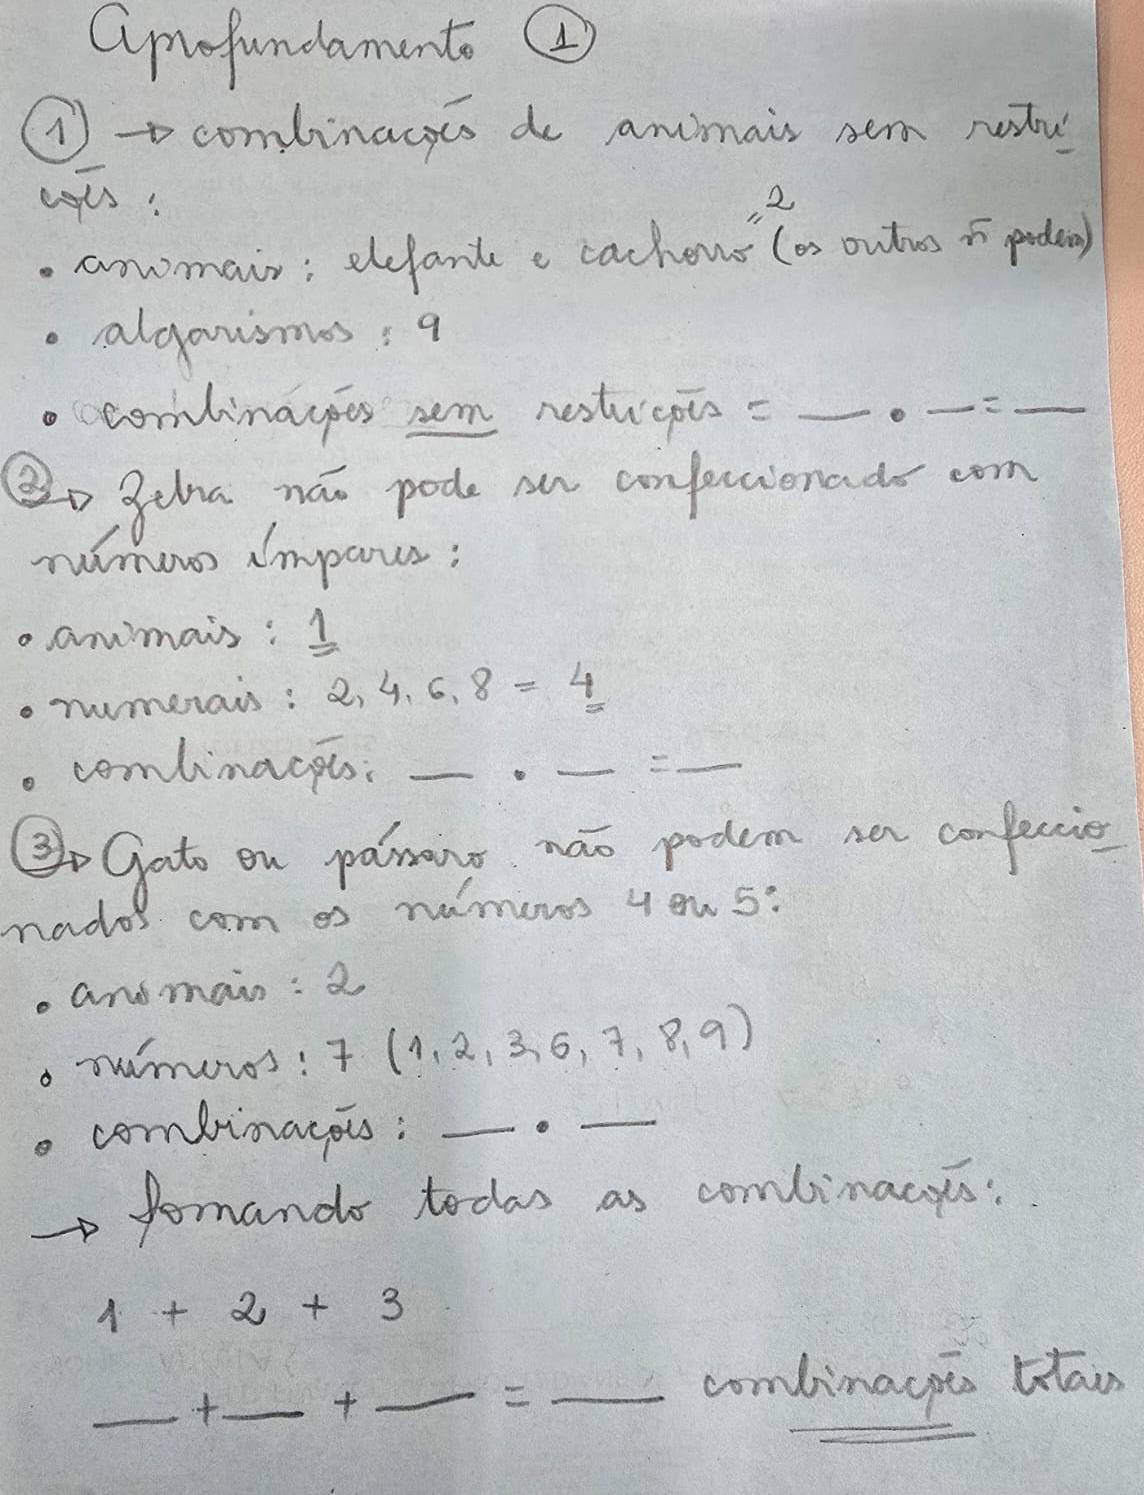 Aprofundamento ①
① → combinações de animais sem restri-
ções:
• animais: elefante e cachorro = 2 (os outros ñ podem)
• algarismos: 9
• combinações sem restrições = __ . __ = __
② → Zebra não pode ser confeccionado com
números ímpares:
• animais: 1
• numerais: 2, 4, 6, 8 = 4
• combinações: __ . __ = __
③ → Gato ou pássaro não podem ser confeccio-
nados com os números 4 ou 5:
• animais: 2
• números: 7 (1, 2, 3, 6, 7, 8, 9)
• combinações: __ . __
→ Somando todas as combinações:
1 + 2 + 3
__ + __ + __ = __ combinações totais